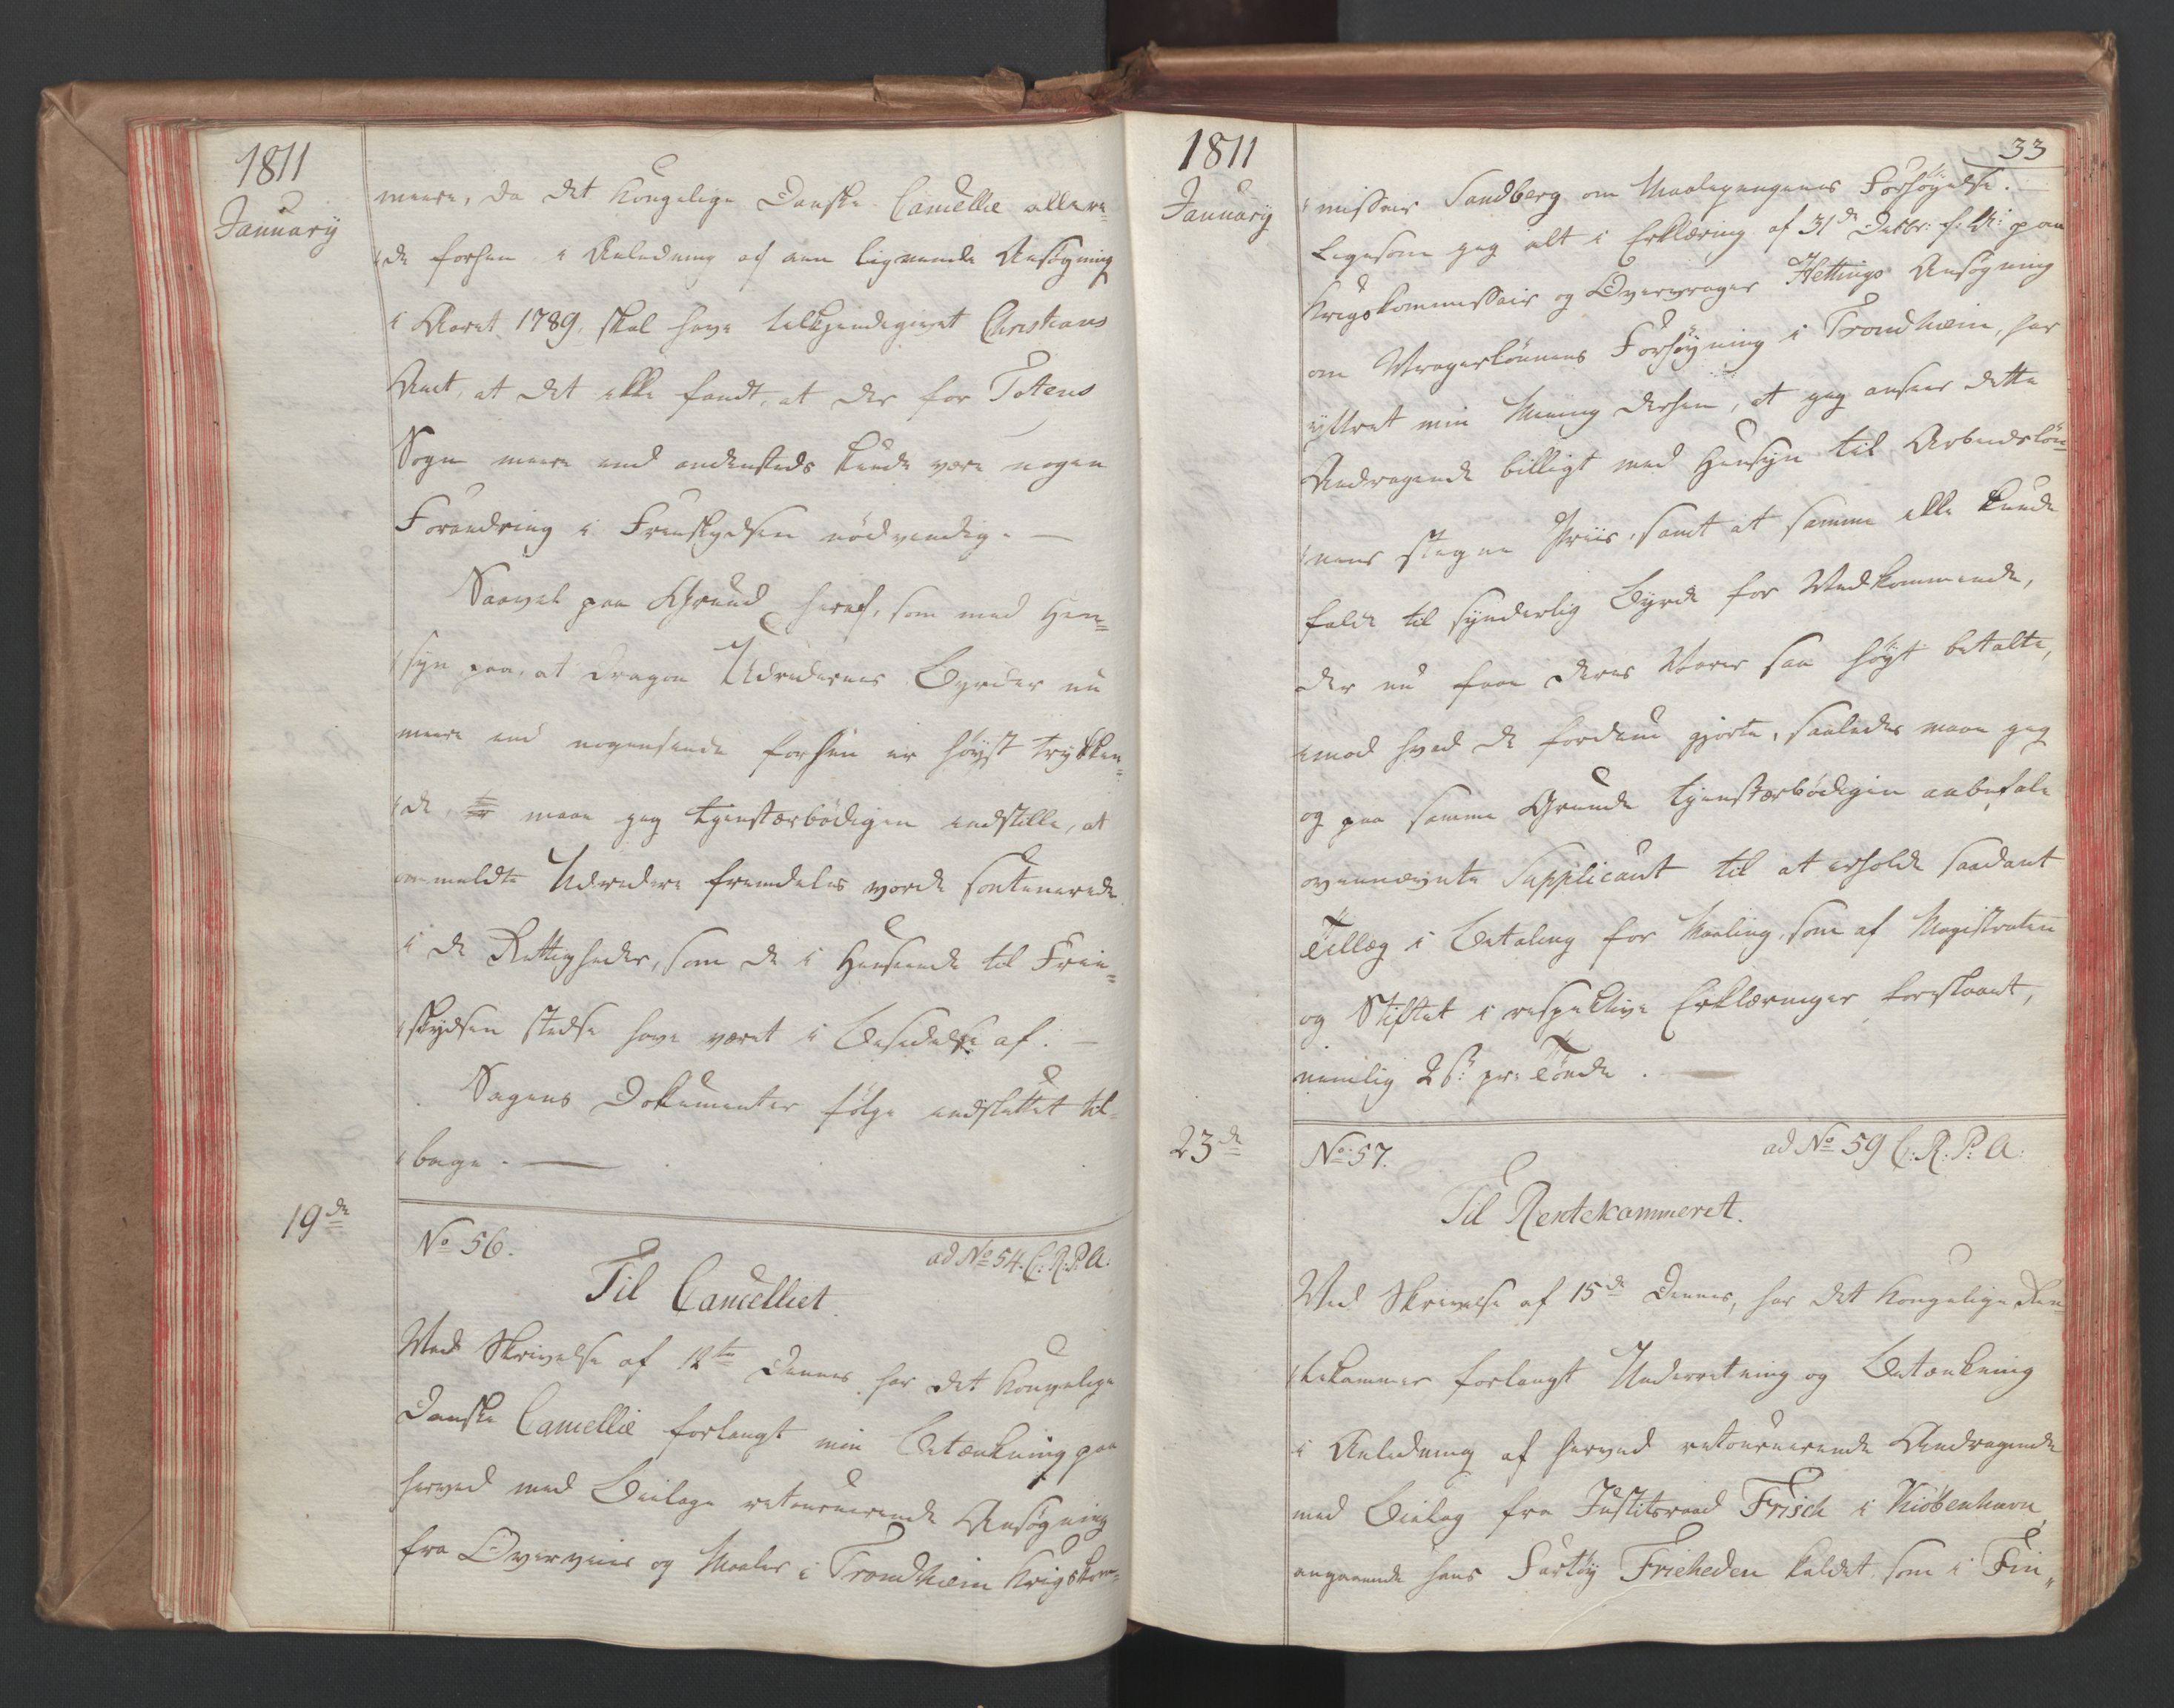 1811
January
meere, da det Kongelige Danske Cancellie allere=
=de forhen i Anledning af een lignende Ansøgning
i Aaret 1789, skal have tilkjendegivet Christians
Amt, at det ikke fandt, at der for Totens
Sogn meere end andensteds kunde være nogen
Forandring i Friskydsen nødvendig. —
Saavel paa Grund heraf, som med Hen=
=syn paa, at Dragon Udredernes Byrder nu
meere end nogensinde forhen er høyst trykken=
=de, maae jeg tjenstærbødigen indstille, at
ommeldte Udredere fremdeles vorde soutenerede
i de Rettigheder, som de i Henseende til Frie=
=skydsen stedse have været i Besiddelse af. —
Sagens Dokumenter følge endsluttet til=
=bage. —
19de
No 56.
ad No 54. C: R: P: A:
Til Cancelliet.
Ved Skrivelse af 12te dennes har det Kongelige
Danske Cancellie forlangt min Betænkning paa
herved med Beilage retournerende Ansøgning
fra Overveier og Maaler i Trondhiem Krigskom=
1811
January
33
=missair Sandberg om Maalepengenes Forhøyelse.
Ligesom jeg alt i Erklæring af 31de Decbr: f: A: paa
Krigskommissair og Overvrager Hettings Ansøgning
om Vragerlønnens Forhøyning i Trondhiem, har
yttret min Mening derhen, at jeg ansaae dette
Andragende billigt med Hensyn til Arbeidsløn=
=nens stegne Priis, samt at samme ikke kunde
falde til synderlig Byrde for Vedkommende,
der nu faae deres Varer saa høyt betalte,
imod hvad de fordum gjorte, saaledes maae jeg
og paa samme Grunde tjenstærbødigen anbefale
ovennævnte Supplicant til at erholde saadant
Tillæg i Betaling for Maaling, som af Magistraten
og Stiftet i respective Erklæringer foreslaaet,
nemlig 2 s: pr: Tønde. —
23de
No: 57.
ad No 59 C: R: P: A:
Til Rentekammeret.
Ved Skrivelse af 15de dennes, har det Kongelige Ren
=tekammer forlangt Underretning og Betænkning
i Anledning af herved retournerende Andragende
med Beilag fra Justitsraad Frisch i Kiøbenhavn,
angaaende hans Fartøy Frieheden kaldet, som i Fin„